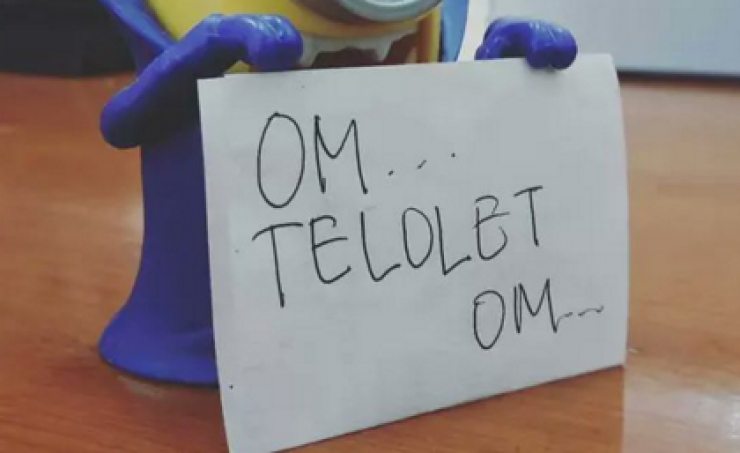 OM...
TELOLET
OM...